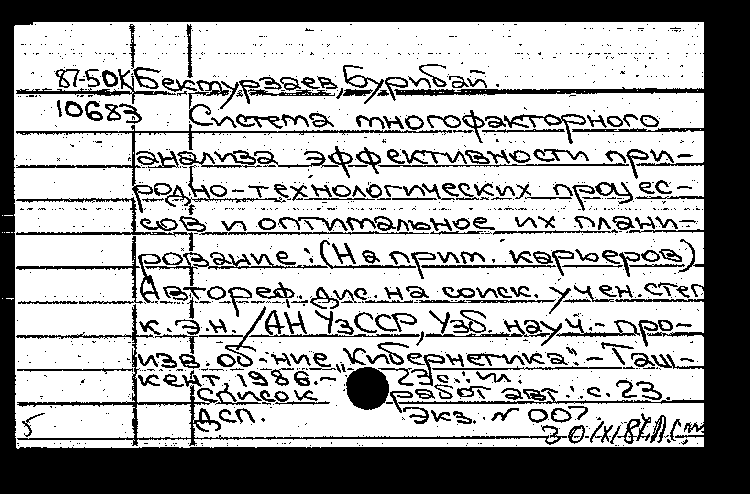 87-50К Бектурзаев, Бурибай.
10683 Система многофакторного
анализа эффективности при-
родно-технологических процес-
сов и оптимальное их плани-
рование: (На прим. карьеров)
Автореф. дис. на соиск. учен. степ
к.э.н. /АН УзССР, Узб. науч.-про-
изв. об-ние „Кибернетика".-Таш-
кент, 1986.- 23с.: ил.
Список работ авт.: с. 23.
ДСП. Экз. N 007.
5